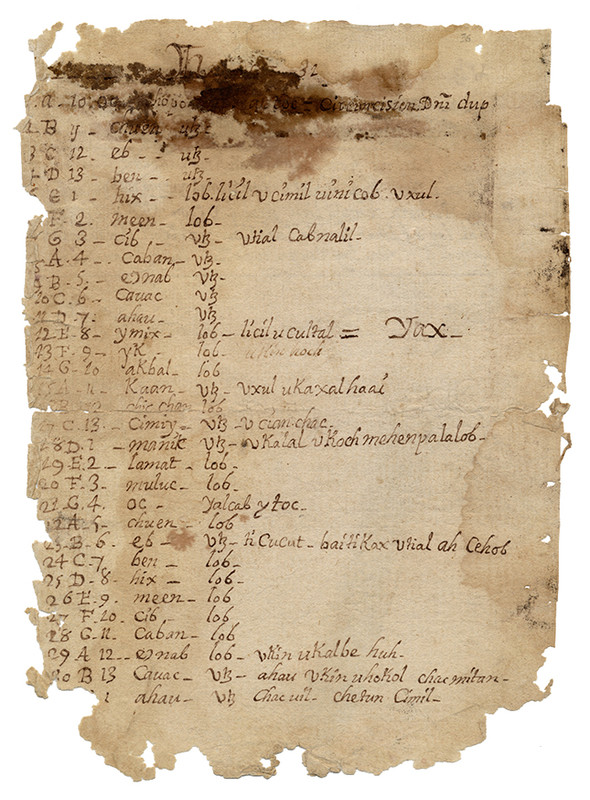 10 oc hoo Circuncision Dñi dup
B y chuen utz
3 C 12. eb - - utz -
D 13 - ben - utz -
E 1 - hix - lob. licil u cimil uinicob. uxul.
F. 2. meen - lob -
G 3 - cib - utz - utial Cabnalil -
A. 4 - Caban - utz -
B. 5. - eɔnab utz -
10 C. 6 - Cauac utz
11 D. 7 - ahau - utz
12 E - 8 - ymix - lob - licil u cultal = Yax -
13 F. 9 - yk - lob - ukin hoch
14 G - 10 akbal - lob -
15 A - 11 - Kaan - utz - uxul ukaxalhaai
chic chan lob
17 C. 13 - Cimiy - utz - u cian chac.
18 D. 1 - manik utz - ukalal ukoch mehenpalalob -
19 E. 2 - lamat - lob -
20 F. 3 - muluc - lob -
21 G. 4. oc - yalcab ytoc -
22 A - 5 - chuen - lob
23 B - 6 - eb - utz - ti Cucut - baitikax utial ah Cehob
24 C - 7 ben - lob -
25 D - 8 - hix - lob -
26 E. 9. meen - lob -
27 F. 10. Cib - lob -
28 G - 11. Caban - lob
29 A 12 - eɔnab lob - ukin ukalbe huh -
30 B 13 Cauac - utz - ahau ukin uhokol chacmitan -
1 ahau - utz Chac uil - chetun Cimil -